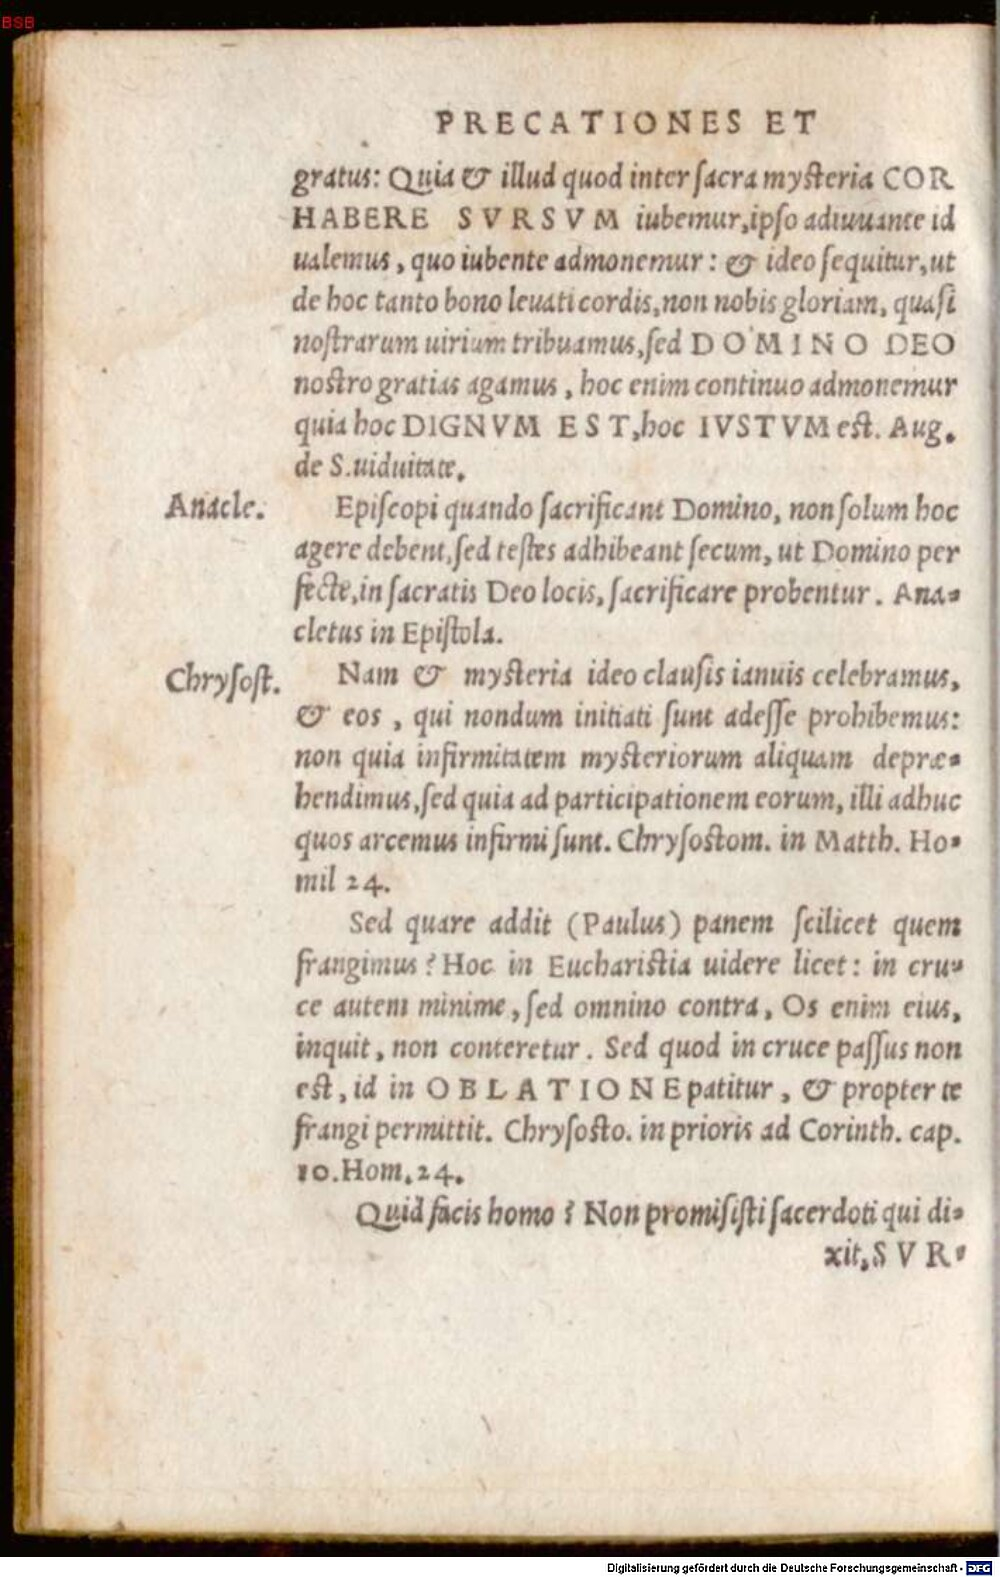 BSB
PRECATIONES ET
gratus: Quia & illud quod inter sacra mysteria COR
HABERE SVRSVM iubemur, ipso adiuuante id
ualemus, quo iubente admonemur: & ideo sequitur, ut
de hoc tanto bono leuati cordis, non nobis gloriam, quasi
nostrarum uirium tribuamus, sed DOMINO DEO
nostro gratias agamus, hoc enim continuo admonemur
quia hoc DIGNVM EST, hoc IVSTVM est. Aug.
de S. uiduitate.
Anacle.
Episcopi quando sacrificant Domino, non solum hoc
agere debent, sed testes adhibeant secum, ut Domino per
fecte, in sacratis Deo locis, sacrificare probentur. Ana-
cletus in Epistola.
Chrysost.
Nam & mysteria ideo clausis ianuis celebramus,
& eos, qui nondum initiati sunt adesse prohibemus:
non quia infirmitatem mysteriorum aliquam depræ-
hendimus, sed quia ad participationem eorum, illi adhuc
quos arcemus infirmi sunt. Chrysostom. in Matth. Ho-
mil 24.
Sed quare addit (Paulus) panem scilicet quem
frangimus? Hoc in Eucharistia uidere licet: in cru-
ce autem minime, sed omnino contra, Os enim eius,
inquit, non conteretur. Sed quod in cruce passus non
est, id in OBLATIONE patitur, & propter te
frangi permittit. Chrysosto. in prioris ad Corinth. cap.
10. Hom. 24.
Quid facis homo? Non promisisti sacerdoti qui di-
xit, SVR-
Digitalisierung gefördert durch die Deutsche Forschungsgemeinschaft - DFG